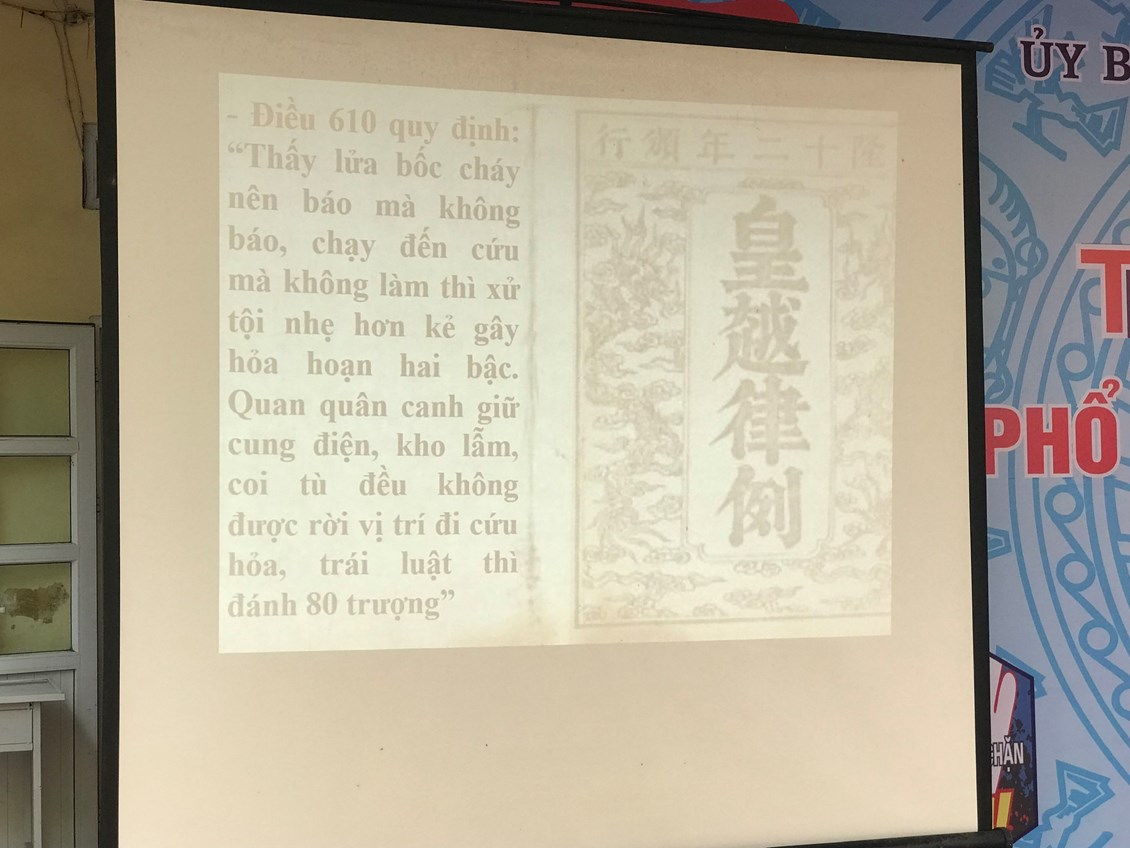 - Điều 610 quy định:
“Thấy lửa bốc cháy
nên báo mà không
báo, chạy đến cứu
mà không làm thì xử
tội nhẹ hơn kẻ gây
hỏa hoạn hai bậc.
Quan quân canh giữ
cung điện, kho lẫm,
coi tù đều không
được rời vị trí đi cứu
hỏa, trái luật thì
đánh 80 trượng”
行頒年二十隆
皇越律例
ỦY B
T
PHỔ
CHẶN